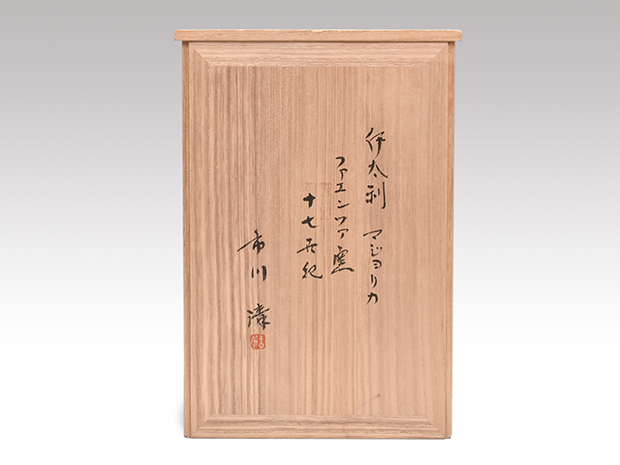 伊太利 マジョリカ
ファエンツァ窯
十七世紀
市川 清